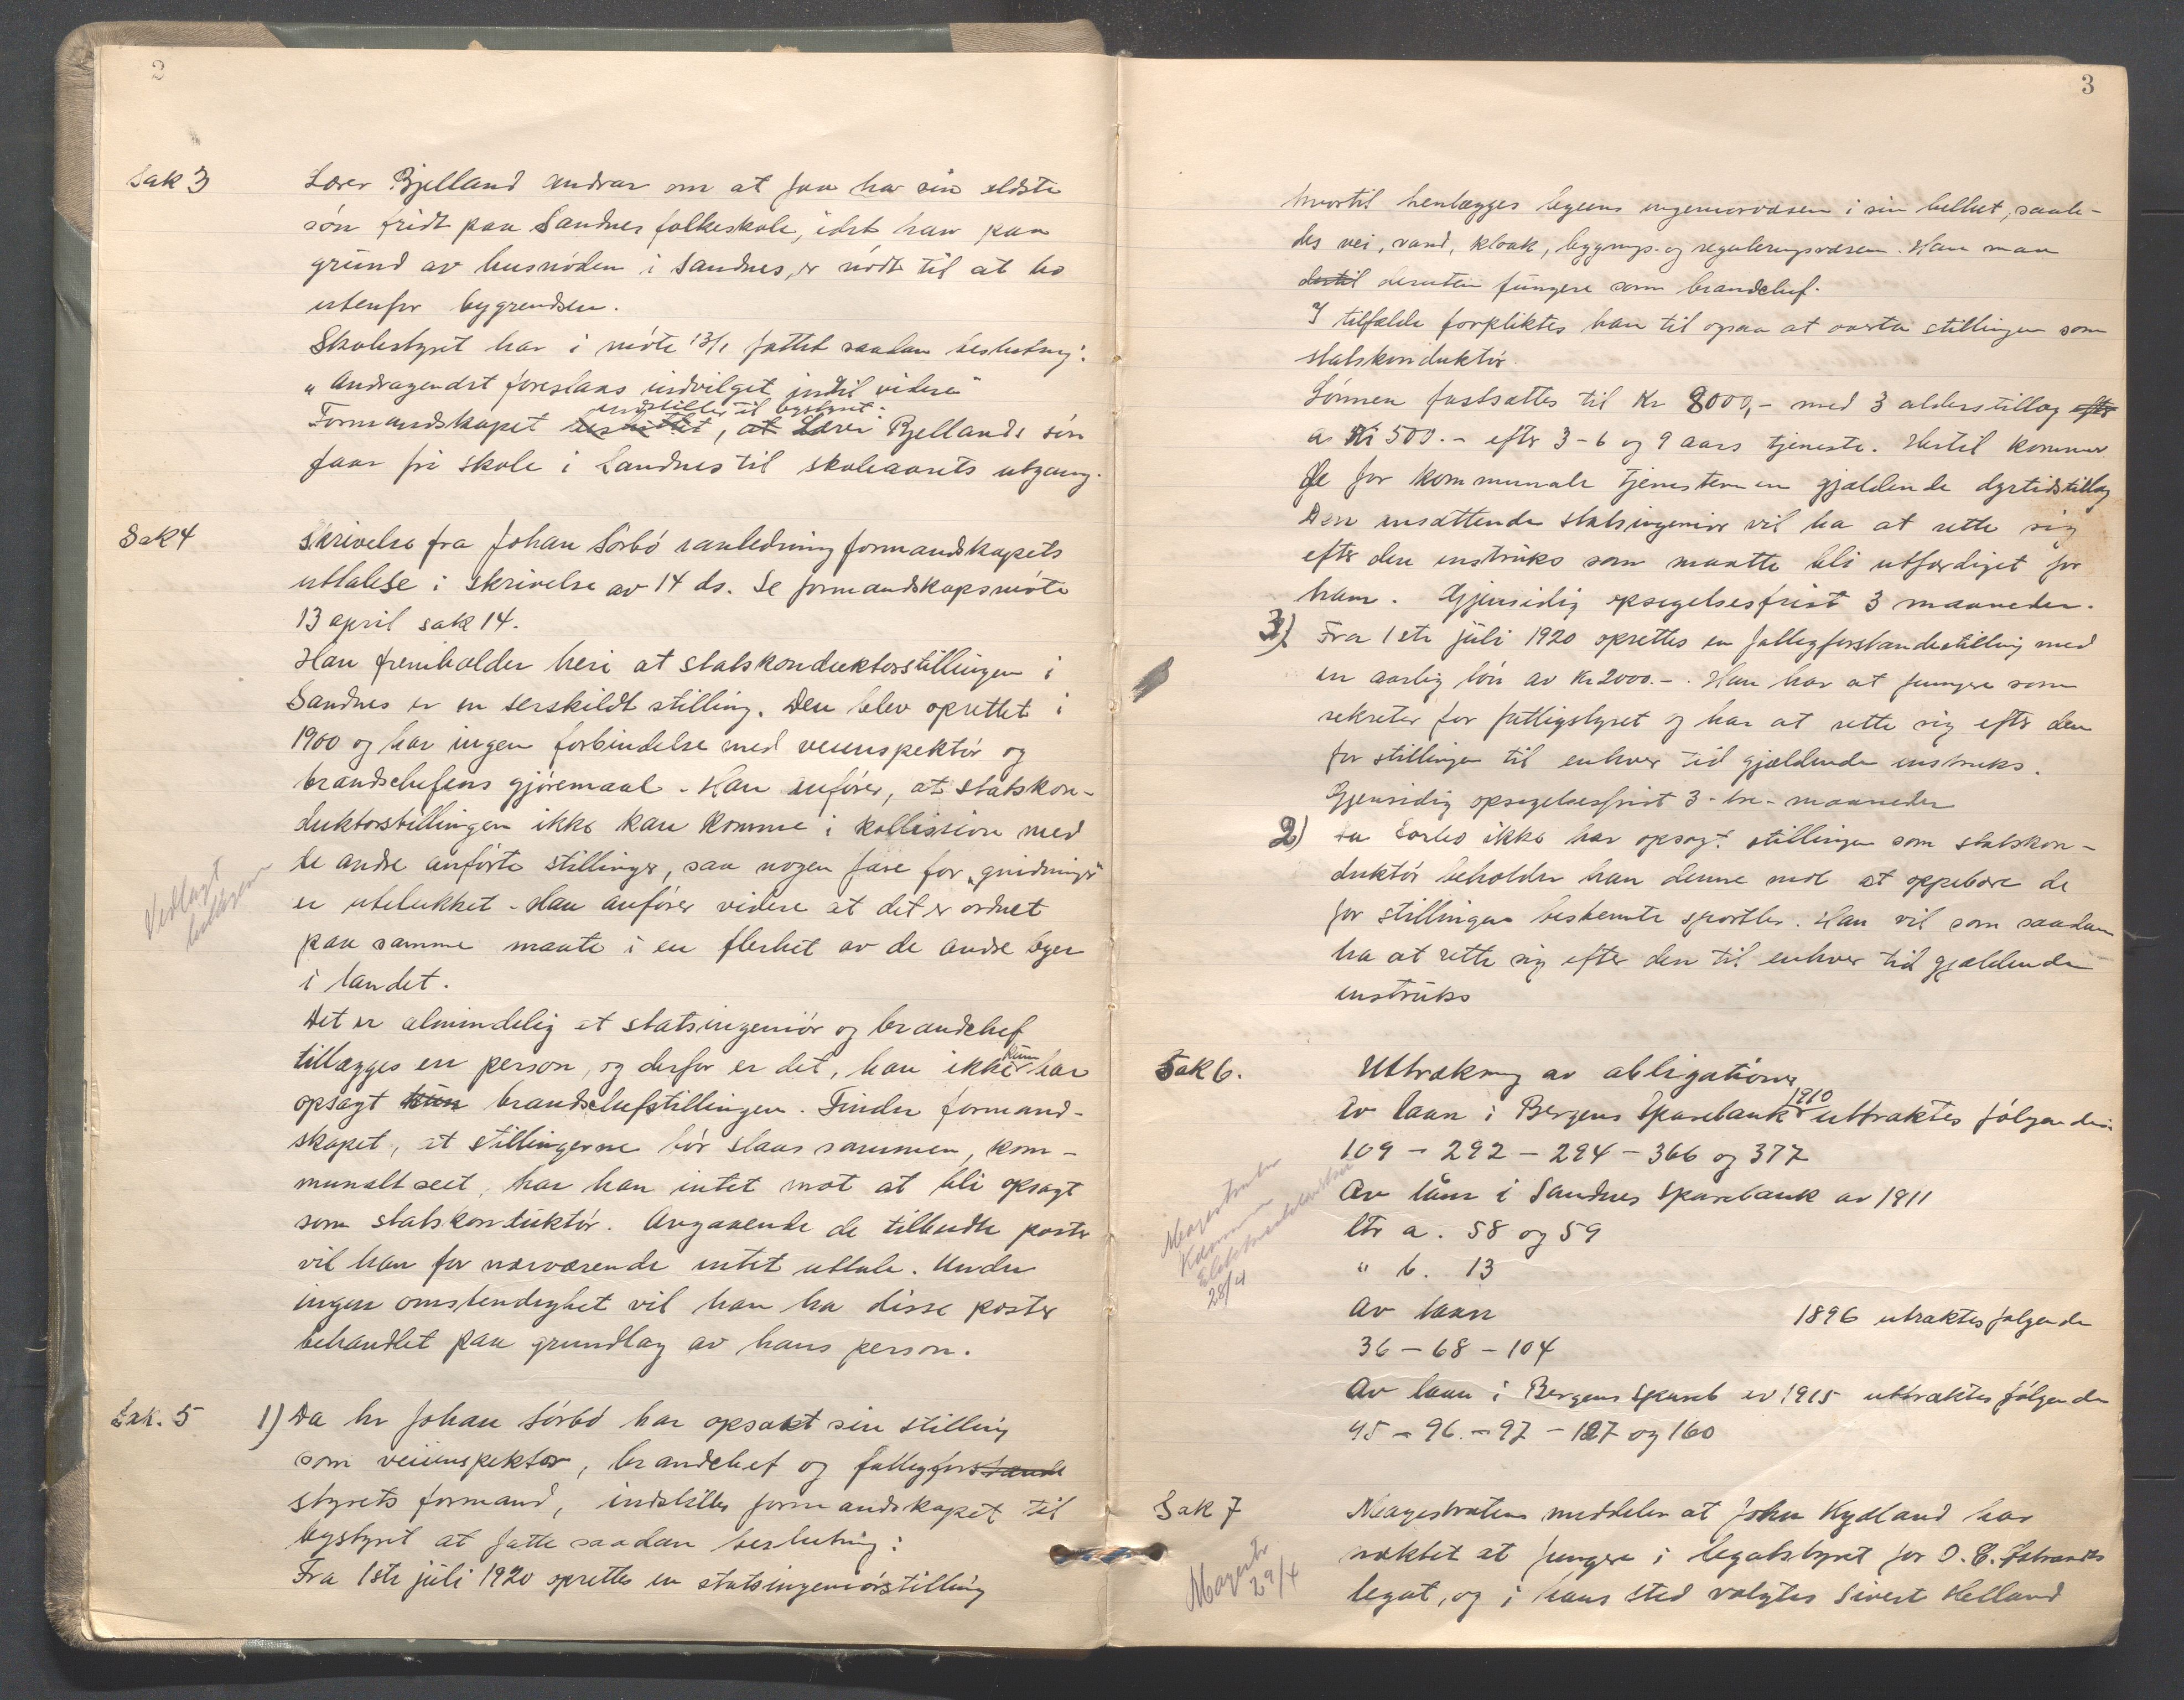 2
Sak 3
Lærer Bjelland andrar om at faa ha sin eldste
søn fridt paa Sandnes folkeskole, idet han paa
grund av husnøden i Sandnes, er nødt til at bo
utenfor bygrendsen.
Skolestyret har i møte 13/1 fattet saadan beslutning:
"Andragendet foreslaas indvilget indtil videre"
indstiller til bystyret:
Formandskapet besluttet, at Lærer Bjellands søn
faar fri skole i Sandnes til skoleaarets utgang.
Sak 4
Skrivelse fra Johan Sørbø i anledning formandskapets
uttalelse i skrivelse av 14 ds. Se formandskapsmøte
13 april sak 14.
Han fremholder heri at stadskonduktørstillingen i
Sandnes er en serskildt stilling. Den blev oprettet i
1900 og har ingen forbindelse med veiinspektør og
brandchefens gjøremaal. Han anfører, at stadskon-
duktørstillingen ikke kan komme i kollission med
de andre anførte stillinger, saa nogen fare for "gnidninger"
er utelukket. Han anfører videre at det er ordnet
paa samme maate i en flerhet av de andre byer
i landet.
Vedlagt
Det er almindelig at statsingeniør og brandchef
tillægges en person, og derfor er det, han ikke kun har
opsagt kun brandchefstillingen. Finder formand-
skapet, at stillingerne bør slaas sammen, kom-
munalt seet, har han intet mot at bli opsagt
som statskonduktør. Angaaende de tilbudte poster
vil han for nærværende intet uttale. Under
ingen omstendighet vil han ha disse poster
behandlet paa grundlag av hans person.
Sak. 5
1) Da hr Johan Sørbø har opsakt sin stilling
som veiinspektør, brandchef og fattigforstande
styrets formand, indstiller formandskapet til
bystyret at fatte saadan beslutning:
Fra 1ste juli 1920 oprettes en statsingeniørstilling
3
hvortil henlægges byens ingeniørvæsen i sin helhet, saale-
des vei, vand, kloak, bygnings- og reguleringsvæsen. Han maa
dertil desuten fungere som brandchef.
I tilfælde forpliktes han til ogsaa at overta stillingen som
statskonduktør.
Lønnen fastsættes til Kr 8000,- med 3 alderstillæg efter
a Kr 500.- efter 3-6 og 9 aars tjeneste. Hertil kommer
de for kommunale tjenestemen gjældende dyrtidstillæg
Den ansættende statsingeniør vil ha at rette sig
efter den instruks som maatte bli utferdiget for
ham. Gjensidig opsigelsesfrist 3 maaneder.
3) Fra 1ste juli 1920 oprettes en fattigforstanderstilling med
en aarlig løn av Kr 2000.-. Han har at fungere som
sekretær for fattigstyret og har at rette sig efter den
for stillingen til enhver tid gjældende instruks.
Gjensidig opsigelsesfrist 3 - tre - maaneder
2) Da Sørbø ikke har opsagt stillingen som statskon-
duktør beholder han denne mot at oppebære de
for stillingen bestemte sportler. Han vil som saadan
ha at rette sig efter den til enhver tid gjældende
instruks
Sak 6.
Uttrækning av obligationer
Av laan i Bergens Sparebank 1910 uttraktes følgende:
109 - 292 - 294 - 366 og 377
Av laan i Sandnes Sparebank av 1911
ltr a. 58 og 59
" b. 13
28/4
Av laan 1896 utraktes følgende
36 - 68 - 104
Av laan i Bergens Spareb av 1915 uttraktes følgende
45 - 96 - 97 - 127 og 160
Sak 7
Magistraten meddeler at John Kydland har
næktet at fungere i legatstyret for O. E.
legat, og i hans sted valgtes Sivert Helland
Magistr
29/4